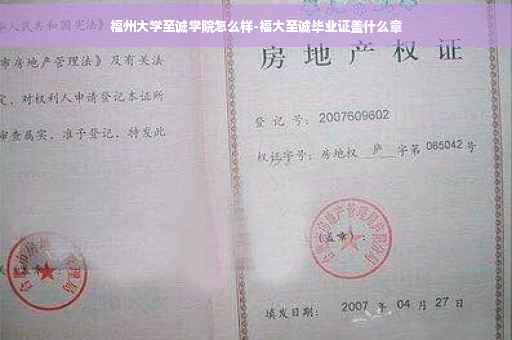 福州大学至诚学院怎么样-福大至诚毕业证盖什么章
华人民共和国宪法》
市房地产管理法》及有关法
定，对权利人申请登记本证所
审查属实，准予登记，特发此
房地产权证
登记号：2007609602
权证字号：房地权 庐 字第 085042 号
(盖章)：
填发日期： 2007 年 04 月 27 日